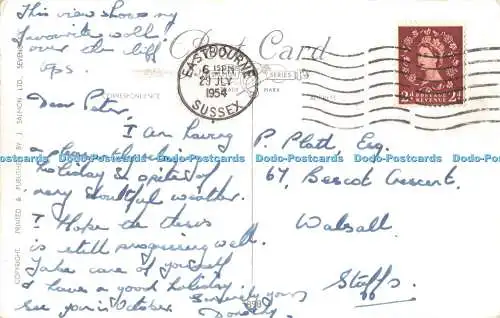 This view shows my
favourite walk!
over the cliff
tops.
Post Card
CORRESPONDENCE
ADDRESS
EASTBOURNE
6 15PM
20 JLY
1954
SUSSEX
SERIES
MARK
POSTAGE
REVENUE
2d 2d
COPYRIGHT. PRINTED & PUBLISHED BY J. SALMON LTD., SEVENOAKS
Dear Peter,
I am having
a pleasant
holiday in spite of
very doubtful weather.
I hope the
is still progressing well.
Take care of yourself
& have a good holiday.
see you in October.
Sincerely yours
Dorothy
P. Platt, Esq.
67, Bescot Crescent,
Walsall
Staffs.
Dodo-Postcards Dodo-Postcards Dodo-Postcards Dodo-Postcards Dodo-Postcards